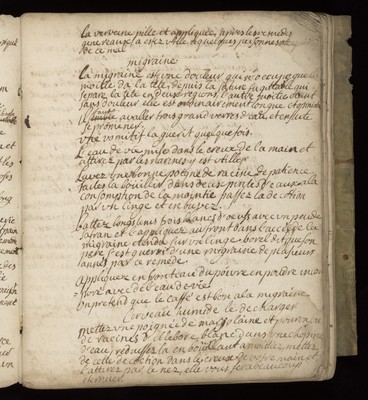 la verveine pilée et appliquée, apres les remedes
generaux, a esté utile a quelques personnes
de ce mal
migraine
la migraine est une douleur qui n'occupe que la
moitié de la teste, depuis la suture sagittale qui
separe la tete en deux regions, l'autre moitié étant
sans douleur elle est ordinairement longue et
il faut avaller trois grand verres d'eau, et ensuite
se promener
un vomitif la guerit quelque fois.
l'eau de vie mise dans le creux de la main et
attirez par les narines y est utille
lavez une bonne poigne de racine de patience
faites la bouillir dans deux pintes d'eau a la
consomption de la moitie passez la de
par un linge et en buvez
battez longtems trois blancs d'oeufs avec un peu de
safran et l'appliquez au front dans l'acces de la
migraine etendu sur un linge
pers. s'est querri d'une migraine de plusieur
années par ce remede
appliquez en fronteau du poivre en poudre
avec de l'eau de vie
on pretend que le caffé est bon a la migraine
Cerveau humide le decharger
mettez une poignée de marjolaine et
de racines d'elebore blanc dans une chopine
d'eau, reduisez la en bouillant a moitié, mettez
de cette decoction dans le creux de votre main et
l'attirez par le nez, elle vous fera beaucoup